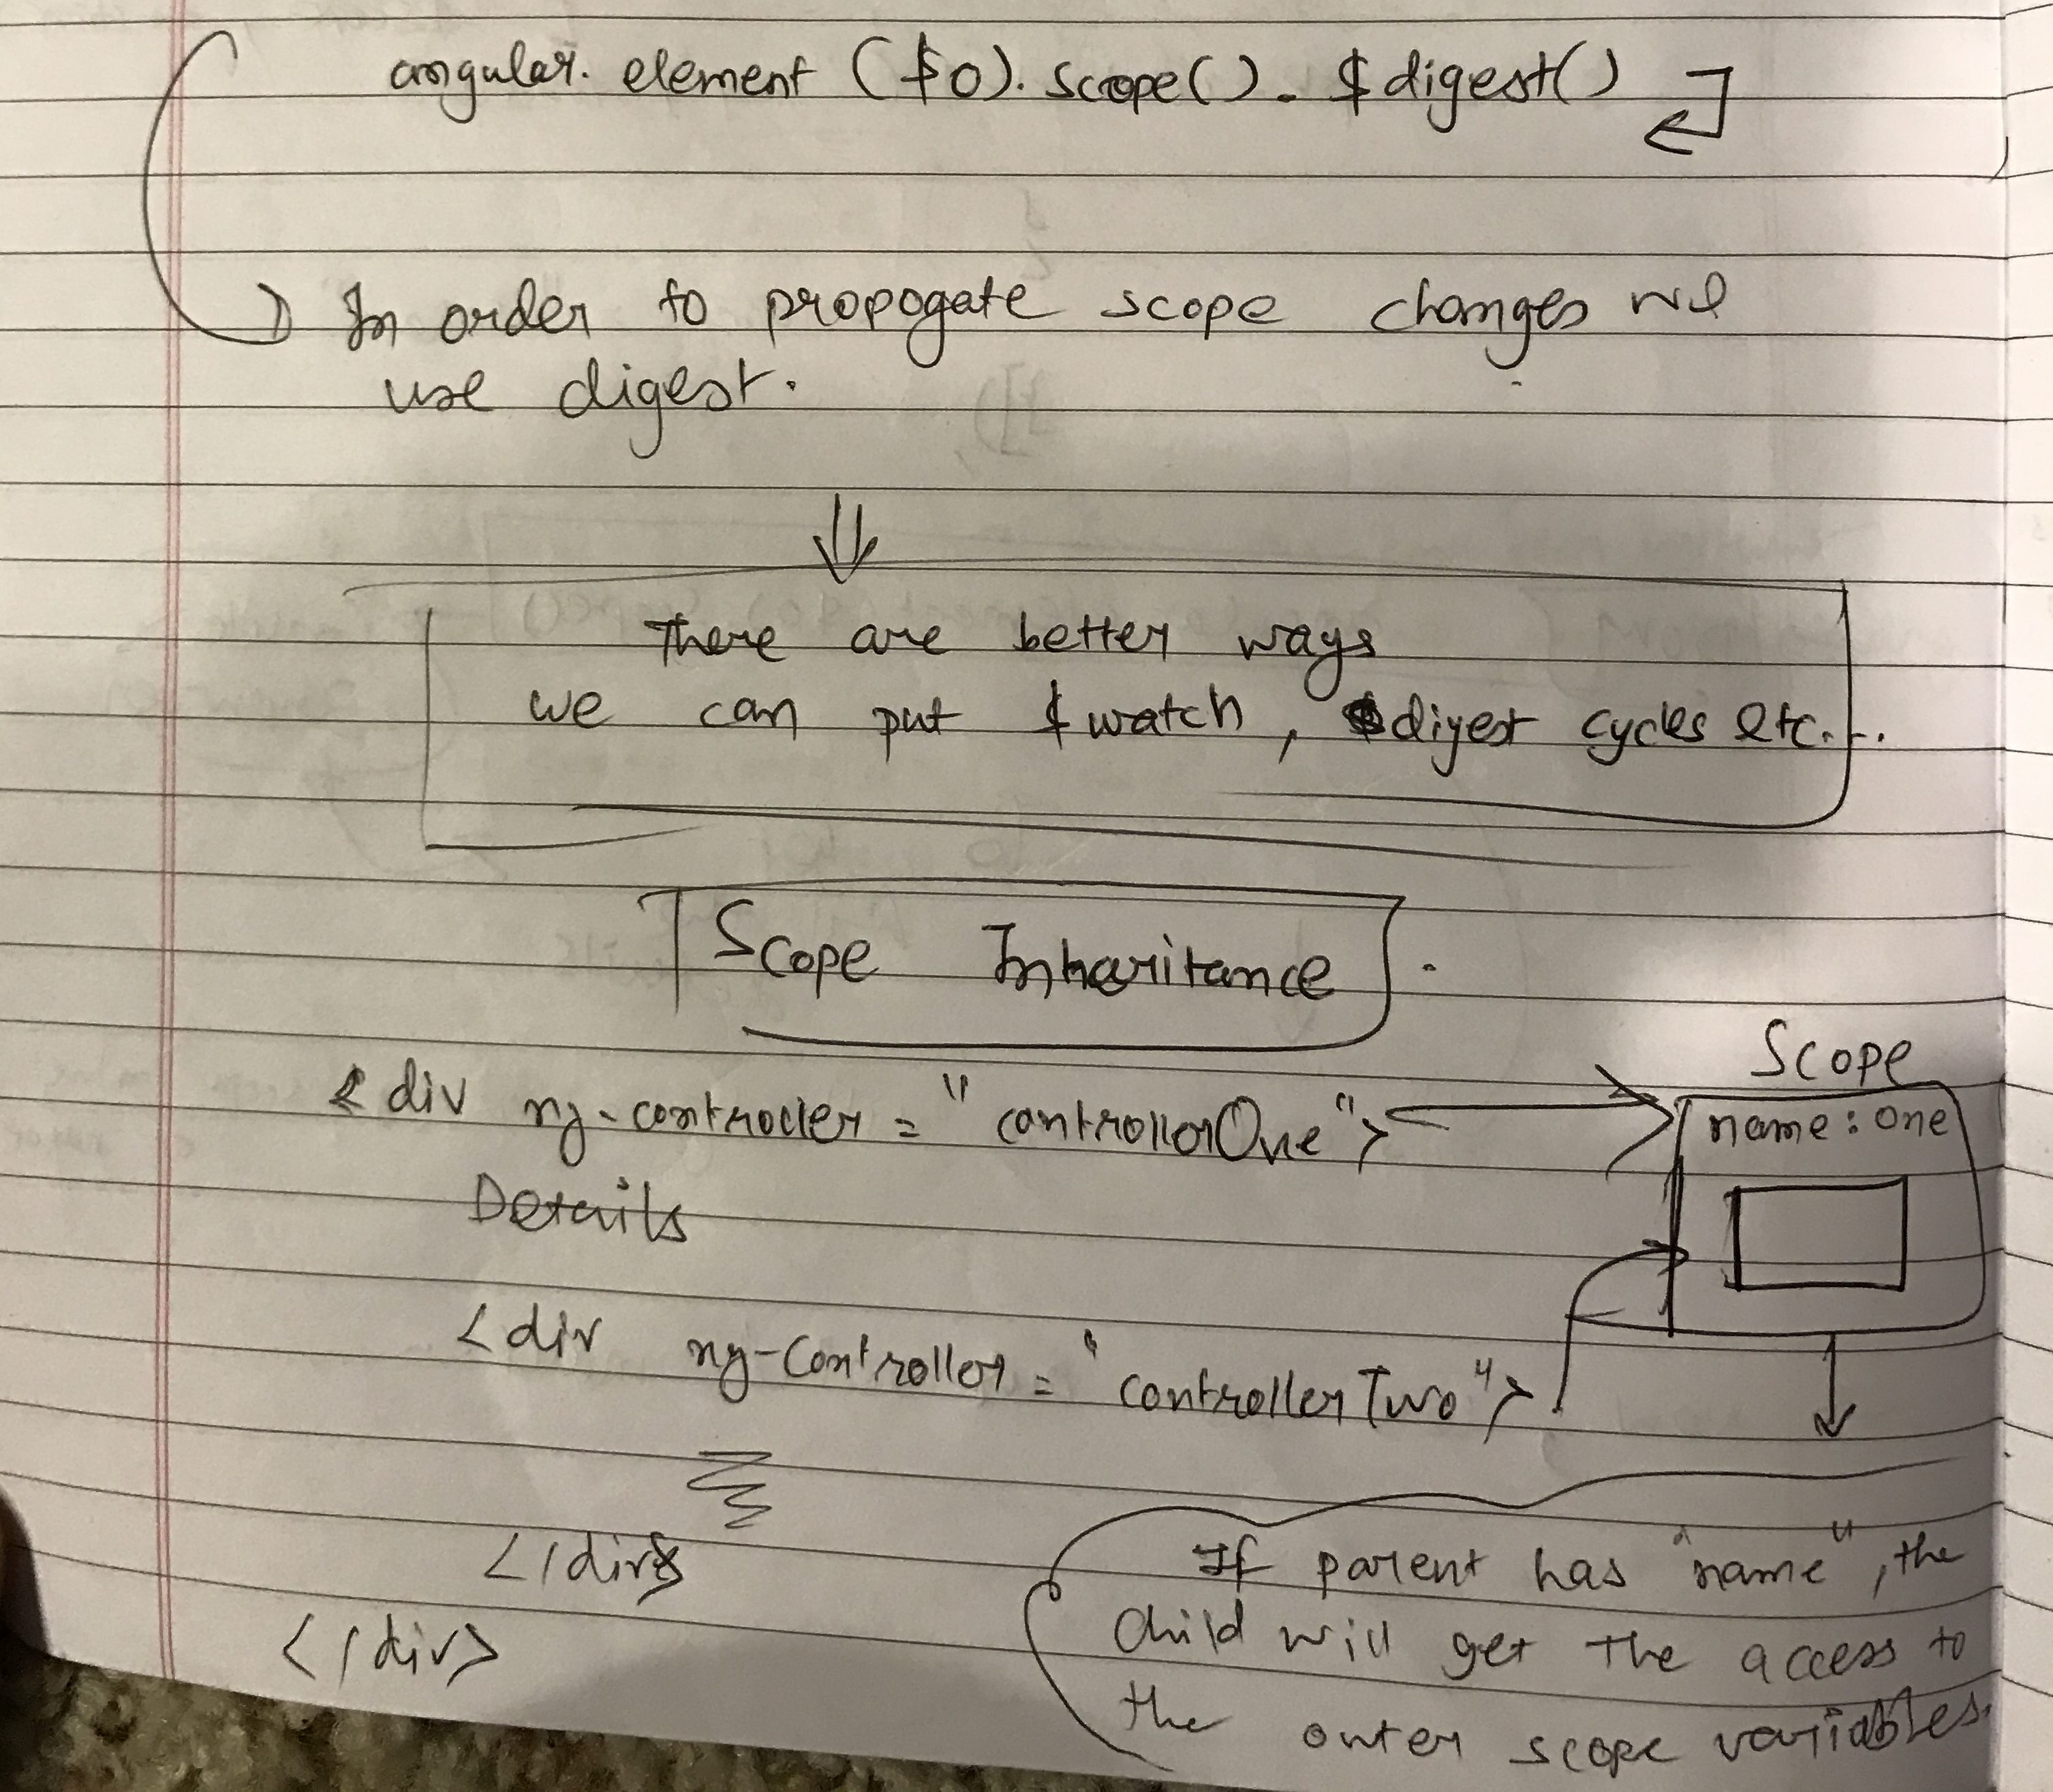 angular. element ($0). scope(). $digest()
In order to propogate scope changes we
use digest.
There are better ways
we can put $watch, $digest cycles etc...
Scope Inheritance.
Scope
<div ng-controller = "controllerOne">
name: one
Details
<div ng-controller = "controllerTwo">
</div>
</div>
If parent has "name", the
child will get the access to
the outer scope variables.